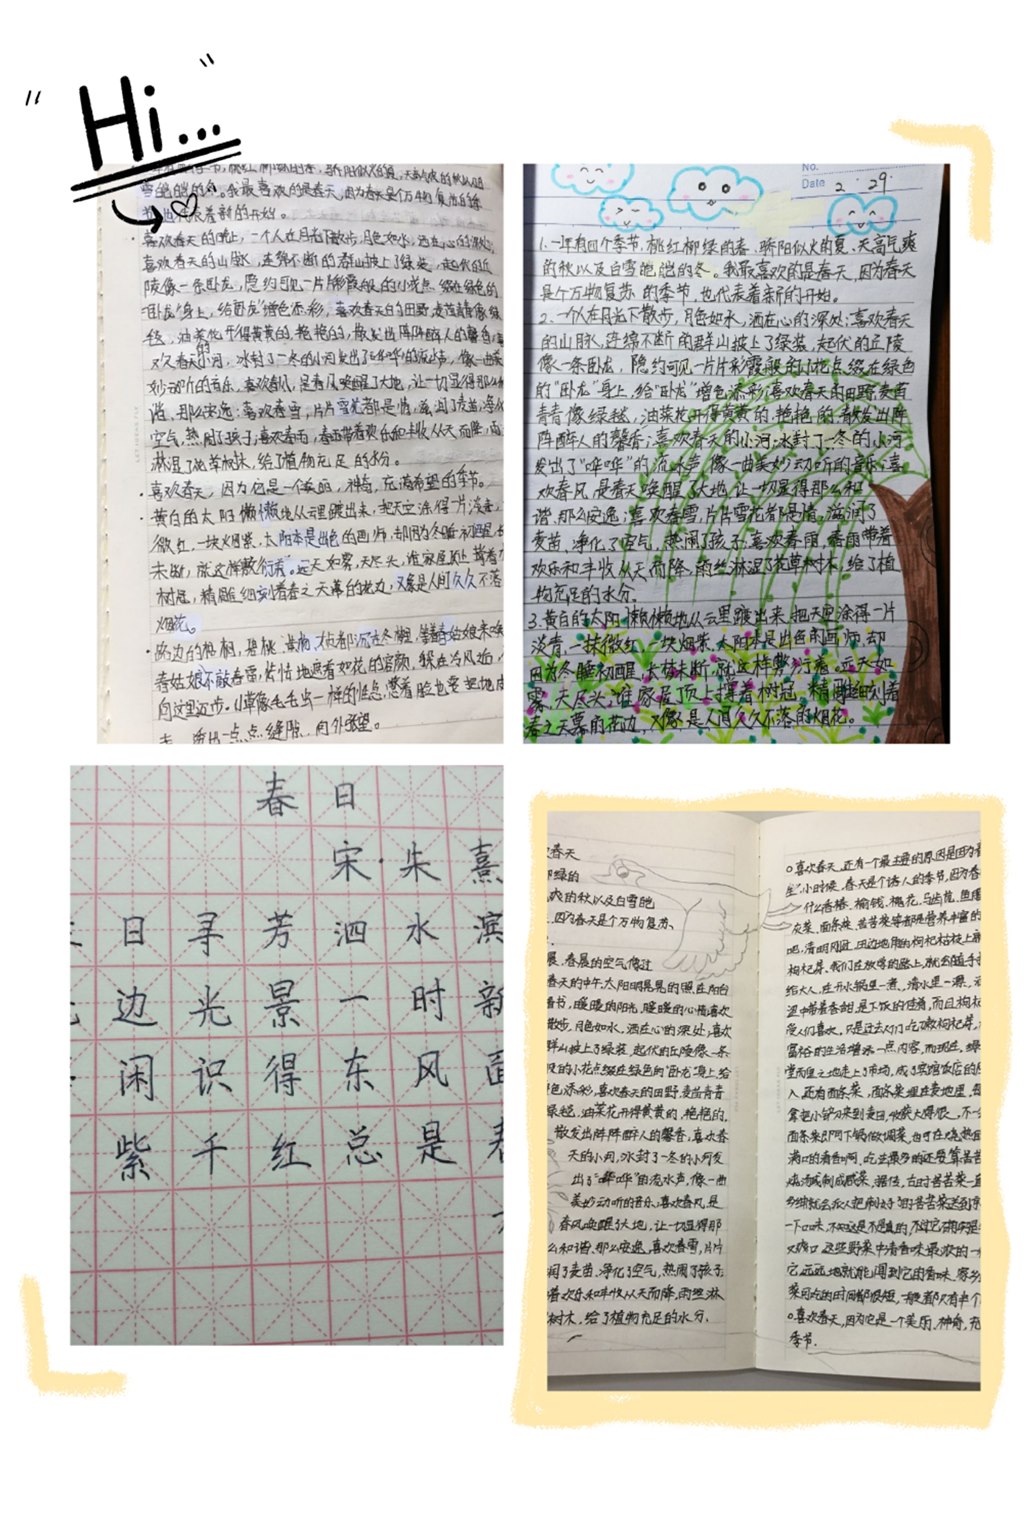 "Hi..."
雪皑皑的冬。我最喜欢的是春天,因为春天是个万物复苏的季
节,也代表着新的开始。
喜欢春天的晚上,一个人在月光下散步,月色如水,洒在心的深处;
喜欢春天的山脉,连绵不断的群山披上了绿装,起伏的丘
陵像一条卧龙,隐约可见一片片彩霞般的小花点缀在绿色的
"卧龙"身上,给"卧龙"增色添彩,喜欢春天的田野,麦苗青青像绿
毯,油菜花开得黄黄的,艳艳的,散发出阵阵醉人的馨香;喜
欢春天的小河,冰封了一冬的小河发出了"哗哗"的流水声,像一曲美
妙动听的音乐,喜欢春风,是春风唤醒了大地,让一切显得那么和
谐,那么安逸;喜欢春雪,片片雪花都是情,滋润了麦苗,净化
空气,热闹了孩子;喜欢春雨,春雨带着欢乐和丰收从天而降,雨
淋湿了花草树木,给了植物充足的水分。
喜欢春天,因为它是一个美丽,神奇,充满希望的季节。
黄白的太阳懒懒地从云里踱出来,把天空涂得一片淡青,
微红,一块烟紫,太阳本是出色的画师,却因为冬睡初醒,
未断,就这样敷衍着。远天如雾,天尽头,谁家屋顶上撑着
树冠,精雕细刻着春之天幕的花边,又像是人间久久不落
烟花。
春姑娘不敢春雷,
向这里迈步。小草像毛毛虫一样的
一点点缝隙,向外张望。
No.
Date 2·29·
1.一年有四个季节,桃红柳绿的春、骄阳似火的夏、天高气爽
的秋以及白雪皑皑的冬。我最喜欢的是春天,因为春天
是个万物复苏的季节,也代表着新的开始。
2.一个人在月光下散步,月色如水,洒在心的深处;喜欢春天
的山脉,连绵不断的群山披上了绿装,起伏的丘陵
像一条卧龙,隐约可见一片片彩霞般的小花点缀在绿色
的"卧龙"身上,给"卧龙"增色添彩;喜欢春天的田野,麦苗
青青像绿毯,油菜花开得黄黄的,艳艳的,散发出阵
阵醉人的馨香;喜欢春天的小河,冰封了一冬的小河
发出了"哗哗"的流水声,像一曲美妙动听的音乐;喜
欢春风,是春天唤醒了大地,让一切显得那么和
谐,那么安逸;喜欢春雪,片片雪花都是情,滋润了
麦苗,净化了空气,热闹了孩子;喜欢春雨,春雨带着
欢乐和丰收从天而降,雨丝淋湿了花草树木,给了植
物充足的水分。
3.黄白的太阳懒懒地从云里踱出来,把天空涂得一片
淡青,一抹微红,一块烟紫,太阳本是出色的画师,却
因为冬睡初醒,太梦未断,就这样敷衍着。远天如
雾,天尽头,谁家屋顶上撑着树冠,精雕细刻着
春之天幕的花边,又像是人间久久不落的烟花。
春日
宋·朱熹
日寻芳泗水滨
边光景一时新
闲识得东风面
紫千红总是春
欢春天
柳绿的
爽的秋以及白雪皑
,因为春天是个万物复苏、
晨,春晨的空气像过
春天的中午,太阳明晃晃的照在阳台
看书,暖暖的阳光,暖暖的心情;喜欢
散步,月色如水,洒在心的深处;喜欢
群山披上了绿装,起伏的丘陵像一条
般的小花点缀在绿色的"卧龙"身上,给
色添彩,喜欢春天的田野,麦苗青青
绿毯,油菜花开得黄黄的,艳艳的,
散发出阵阵醉人的馨香,喜欢春
天的小河,冰封了一冬的小河发
出了"哗哗"的流水声,像一曲
美妙动听的音乐,喜欢春风,是
春风唤醒了大地,让一切显得那
么和谐,那么安逸,喜欢春雪,片片
润了麦苗,净化了空气,热闹了孩子;
着欢乐和丰收从天而降,雨丝淋
树木,给了植物充足的水分。
喜欢春天,还有一个最主要的原因是因为春
生"小时候,春天是个诱人的季节,因为春
什么香椿、榆钱、槐花、马齿苋、鱼腥
灰菜、面条菜、苦苦菜等都是营养丰富的
吧,清明刚过,田边地角的枸杞枯枝上
枸杞芽,我们在放学的路上,就会随手
给大人,在开水锅里一煮,清水里一漂,
涩中带着香甜,是下饭的佳肴,而且枸杞
受人们喜欢,只是过去人们吃了嫩枸杞芽,
富裕的生活增添一点内容,而现在,
堂而皇之地走上了市场,成了宾馆饭店的
入,还有面条菜,面条菜埋在麦地里,
拿把小铲刀来到麦田,收获大得很,不一
面条来即可下锅做调菜,也可在烧热
满口的清香啊,吃坐最多的还要算苦苦
一下口味,不知这是不是真的,
又爽口,这些野菜中清香味最浓的一
它,远远地就能闻到它的香味,
菜可吃的时间都很短,一般都只有半个
喜欢春天,因为它是一个美丽、神奇、充
季节.